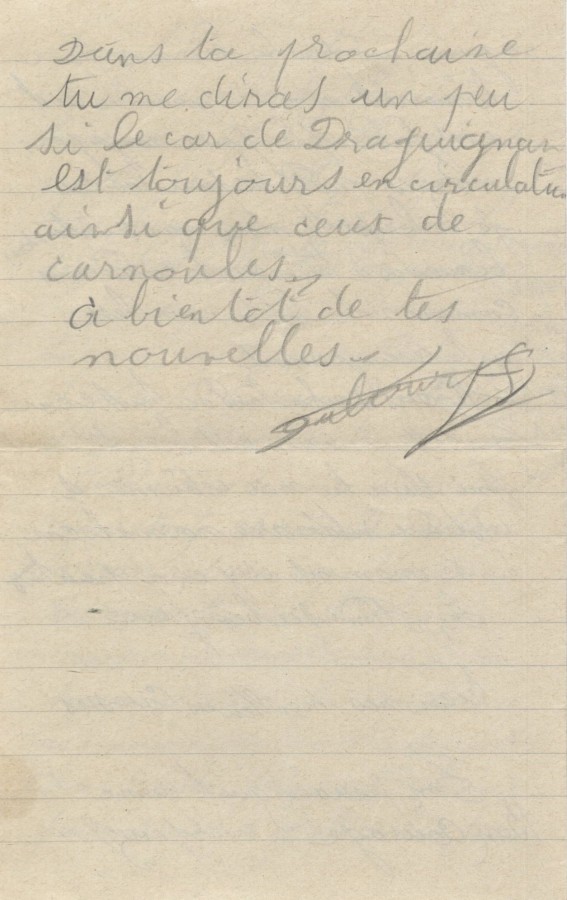 Dans ta prochaine
tu me diras un peu
si le car de Draguignan
est toujours en circulation
ainsi que ceux de
carnoules.
à bientôt de tes
nouvelles.